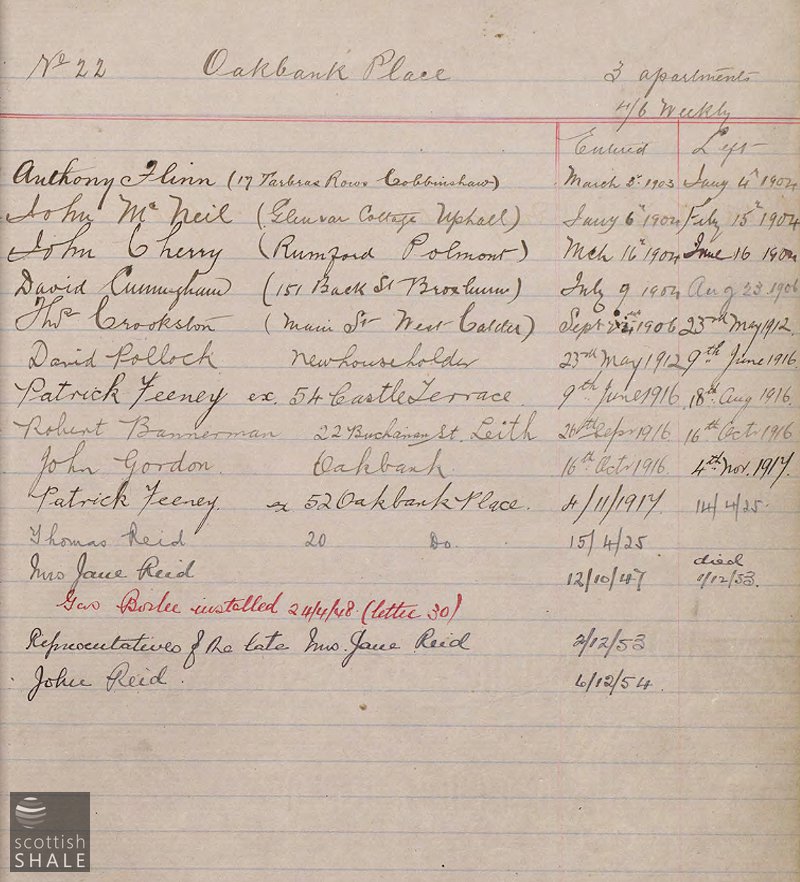 No 22 Oakbank Place 3 apartments
4/6 Weekly
Entered Left
Anthony Flinn (17 Tarbrax Rows Cobbinshaw) March 2d 1903 Jany 4th 1904
John McNeil (Glenvar Cottage Uphall) Jany 6th 1904 Feby 15th 1904
John Cherry (Rumford Polmont) Mch 16th 1904 June 16 1904
David Cunningham (151 Back St Broxburn) July 9 1904 Aug 23 1906
Thos Crookston (Main St West Calder) Sept 1906 23rd May 1912.
David Pollock Newhouseholder 23rd May 1912 9th June 1916.
Patrick Feeney ex. 54 Castle Terrace. 9th June 1916 18th Aug 1916.
Robert Bannerman 22 Buchanan St. Leith Sept 1916 16th Octr 1916
John Gordon. Oakbank. 16th Octr 1916. 4th Nov. 1917.
Patrick Feeney. ex 52 Oakbank Place. 4/11/1917. 14/4/25.
Thomas Reid 20 Do. 15/4/25.
Mrs Jane Reid 12/10/47 died 1/12/53.
Gas Boiler installed 24/4/48. (letter 30)
Representatives of the late Mrs. Jane Reid 2/12/53
John Reid. 6/12/54.
scottish
SHALE